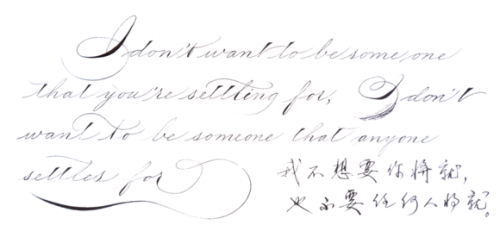 I don't want to be some one
that you're settling for, I don't
want to be someone that anyone
settles for
我不想要你将就,
也不要任何人将就。